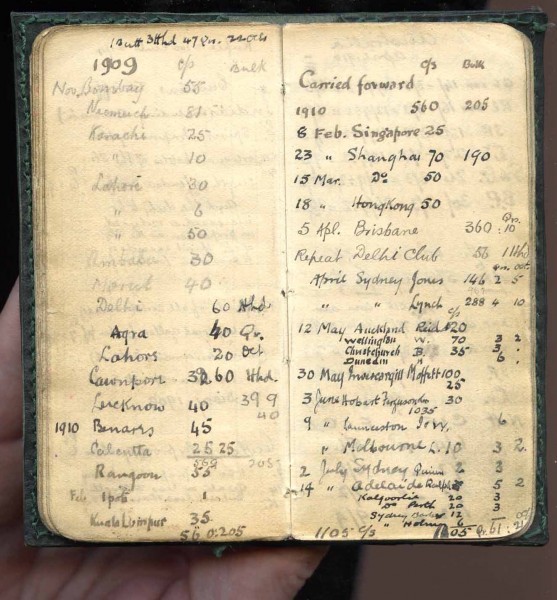 1 Butt 3 Hhd 47 Qr. 22 Oct
1909 c/s Bulk
Nov. Bombay 55
Neemuch 81
Karachi 25
" 10
Lahore 30
" 6
" 50
Ambala 30
Meerut 40
Delhi 60 Hhd
Agra 40 Qr.
Lahors 20 Oct
Cawnpore 32 60 Hhd.
Lucknow 40 39 9
40
1910 Benars 45
Calcutta 25 25
Rangoon 55 205
Feb Ipoh 1
Kuala Lumpur 35
560:205
Carried forward c/s Bulk
1910 560 205
8 Feb. Singapore 25
23 " Shanghai 70 190
15 Mar. Do 50
18 " Hong Kong 50
5 Apl. Brisbane 360 Qrs. 10
Repeat Delhi Club 56 1 Hhd
April Sydney Jones 146 2 5
" " Lynch 288 4 10
c/s
12 May Auckland Reid 20
Wellington W. 70 3 2
Christchurch B. 35 3
Dunedin " 6
30 May Invercargill Moffett 100
25
3 June Hobart Ferguson 30
1035
9 " Launceston 6
" Melbourne L. 10 3 2
2 July Sydney Quinn 6 3
14 " Adelaide 5 2
Kalgoorlie 20 3
Do Perth 20 3
Sydney 12
" 6
1105 c/s 1105 Qr. 61:21